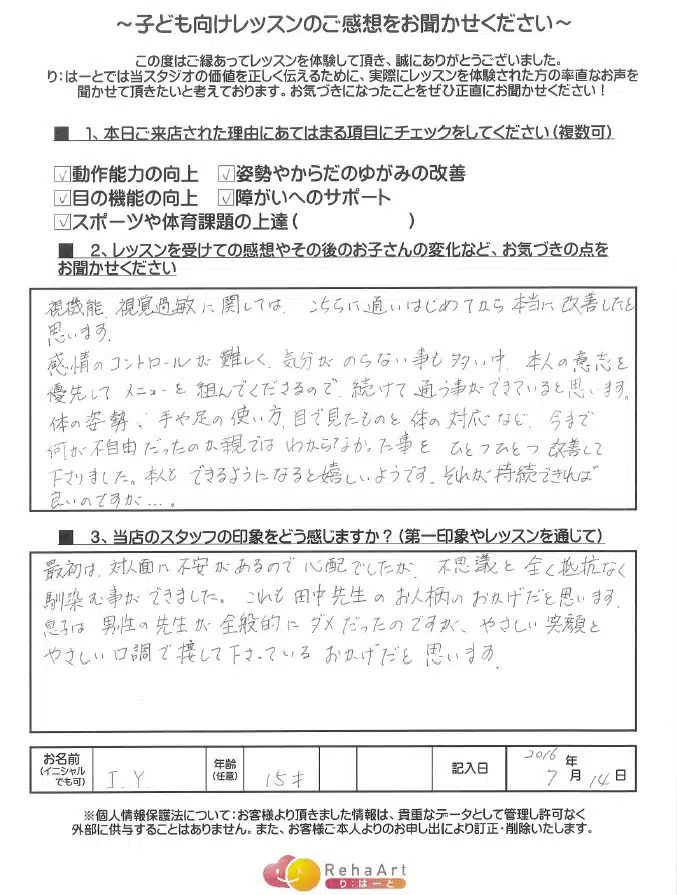 ～子ども向けレッスンのご感想をお聞かせください～
この度はご縁あってレッスンを体験して頂き、誠にありがとうございました。
り:はーとでは当スタジオの価値を正しく伝えるために、実際にレッスンを体験された方の率直なお声を
聞かせて頂きたいと考えております。お気づきになったことをぜひ正直にお聞かせください！
■ 1、本日ご来店された理由にあてはまる項目にチェックをしてください（複数可）
☑動作能力の向上 ☑姿勢やからだのゆがみの改善
☑目の機能の向上 ☑障がいへのサポート
☑スポーツや体育課題の上達（ ）
■ 2、レッスンを受けての感想やその後のお子さんの変化など、お気づきの点を
お聞かせください
視機能、視覚過敏に関しては、こちらに通いはじめてから本当に改善したと
思います。
感情のコントロールが難しく、気分がのらない事も多い中、本人の意志を
優先してメニューを組んでくださるので、続けて通う事ができていると思います。
体の姿勢、手や足の使い方、目で見たものと体の対応など、今まで
何が不自由だったのか親ではわからなかった事をひとつひとつ改善して
下さりました。本人もできるようになると嬉しいようです。それが持続できれば
良いのですが…。
■ 3、当店のスタッフの印象をどう感じますか？（第一印象やレッスンを通じて）
最初は、対人面に不安があるので心配でしたが、不思議と全く抵抗なく
馴染む事ができました。これも田中先生のお人柄のおかげだと思います。
息子は男性の先生が全般的にダメだったのですが、やさしい笑顔と
やさしい口調で接して下さっているおかげだと思います。
お名前 I.Y. 年齢 15才 記入日 2016年
（イニシャル （任意） 7月14日
でも可）
※個人情報保護法について：お客様より頂きました情報は、貴重なデータとして管理し許可なく
外部に供することはありません。また、お客様ご本人よりのお申し出により訂正・削除いたします。
RehaArt
り:はーと